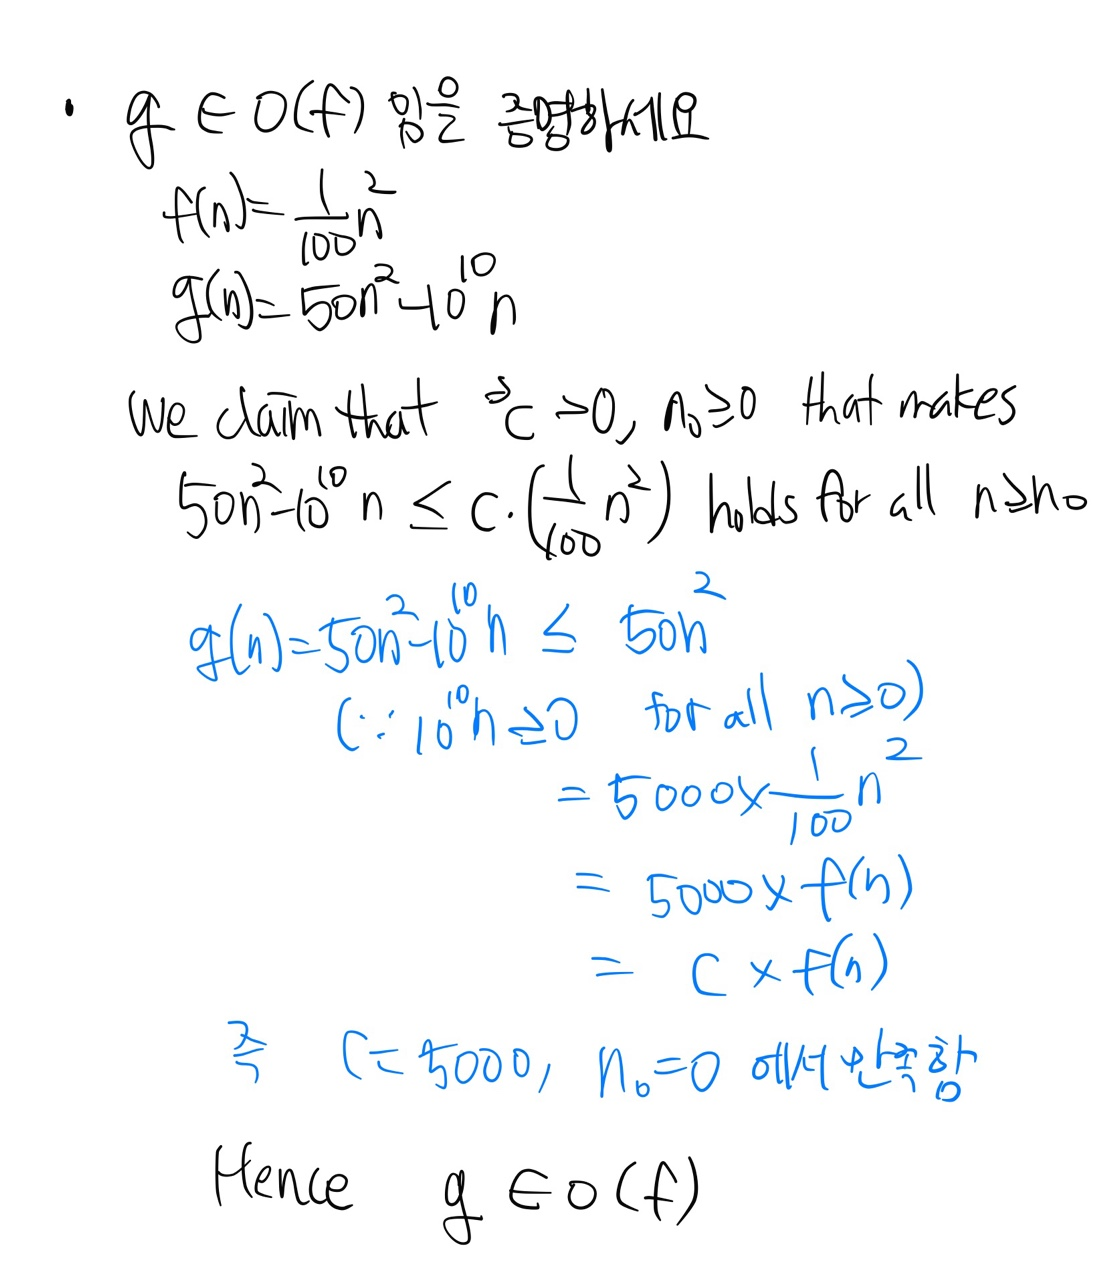 • g ∈ O(f) 임을 증명하세요
f(n)= 1/100 n²
g(n)= 50n²-10¹⁰n
We claim that ∃c >0, n₀≥0 that makes
50n²-10¹⁰n ≤ c·(1/100 n²) holds for all n≥n₀
g(n)=50n²-10¹⁰n ≤ 50n²
(∵ 10¹⁰n≥0 for all n≥0)
= 5000× 1/100 n²
= 5000×f(n)
= C × f(n)
즉 C=5000, n₀=0 에서 만족함
Hence g ∈ O(f)